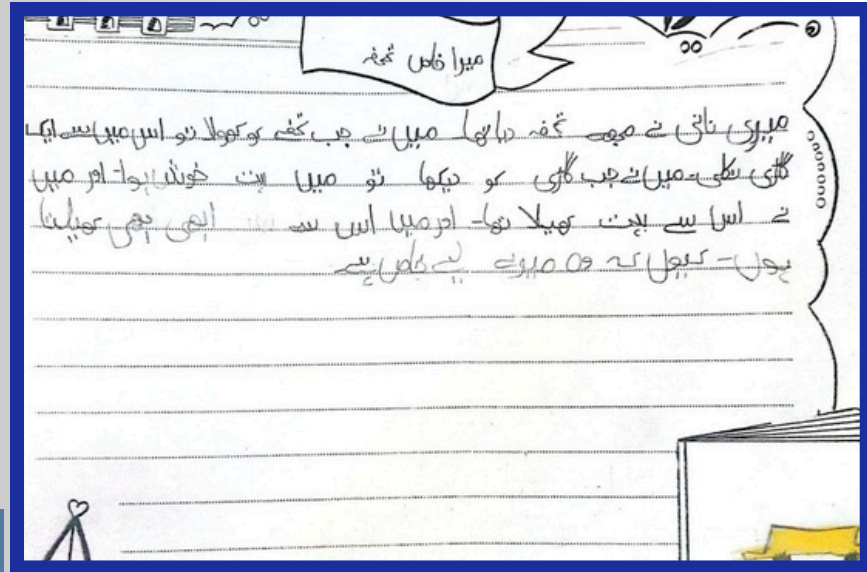 میرا خاص تحفہ
میری نانی نے مجھے تحفہ دیا تھا میں نے جب تحفے کو کھولا تو اس میں سے ایک
گاڑی نکلی۔ میں نے جب گاڑی کو دیکھا تو میں بہت خوش ہوا۔ اور میں
نے اس سے بہت کھیلا تھا۔ اور میں اس سے ابھی بھی کھیلتا
ہوں۔ کیوں کہ وہ میرے لیے خاص ہے